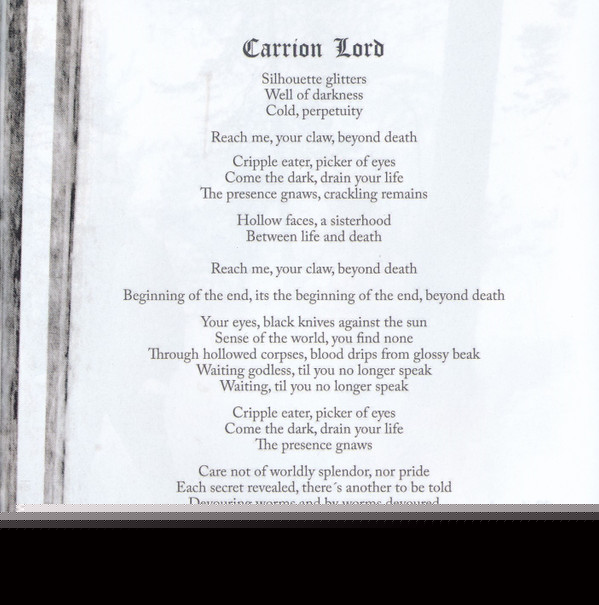 Carrion Lord
Silhouette glitters
Well of darkness
Cold, perpetuity
Reach me, your claw, beyond death
Cripple eater, picker of eyes
Come the dark, drain your life
The presence gnaws, crackling remains
Hollow faces, a sisterhood
Between life and death
Reach me, your claw, beyond death
Beginning of the end, its the beginning of the end, beyond death
Your eyes, black knives against the sun
Sense of the world, you find none
Through hollowed corpses, blood drips from glossy beak
Waiting godless, til you no longer speak
Waiting, til you no longer speak
Cripple eater, picker of eyes
Come the dark, drain your life
The presence gnaws
Care not of worldly splendor, nor pride
Each secret revealed, there´s another to be told
Devouring worms and by worms devoured